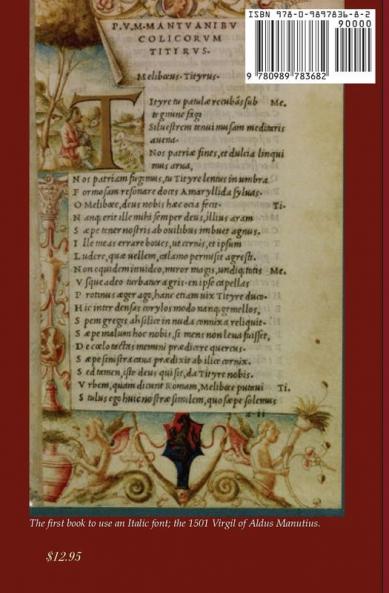 ISBN 978-0-9897836-8-2
90000
9 780989 783682
P.V.M. MANTVANI BV
COLICORVM
TITYRVS.
Melibœus. Tityrus.
Tityre tu patulæ recubãs sub Me.
tegmine fagi
Siluestrem tenui musam meditaris
auena.
Nos patriæ fines, et dulcia linqui
mus arua,
Nos patriam fugimus, tu Tityre lentus in umbra
Formosam resonare doces Amaryllida syluas.
O Melibœe, deus nobis hæc ocia fecit. Ti.
Nanq; erit ille mihi semper deus, illius aram
Sæpe tener nostris ab ouilibus imbuet agnus.
Ille meas errare boues, ut cernis, et ipsum
Ludere, quæ uellem, calamo permisit agresti.
Non equidem inuideo, miror magis, undiq; totis Me.
Vsque adeo turbatur agris. en ipse capellas
Protinus æger ago, hanc etiam uix Tityre duco.
Hic inter densas corylos modo nanq; gemellos,
Spem gregis ah silice in nuda connixa reliquit.
Sæpe malum hoc nobis, si mens non leua fuisset,
De cœlo tactas memini prædicere quercus.
Sæpe sinistra caua prædixit ab ilice cornix.
Sed tamen, iste deus qui sit, da Tityre nobis.
Vrbem, quam dicunt Romam, Melibœe putaui Ti.
Stultus ego huic nostræ similem, quo sæpe solemus
a ii
The first book to use an Italic font; the 1501 Virgil of Aldus Manutius.
$12.95